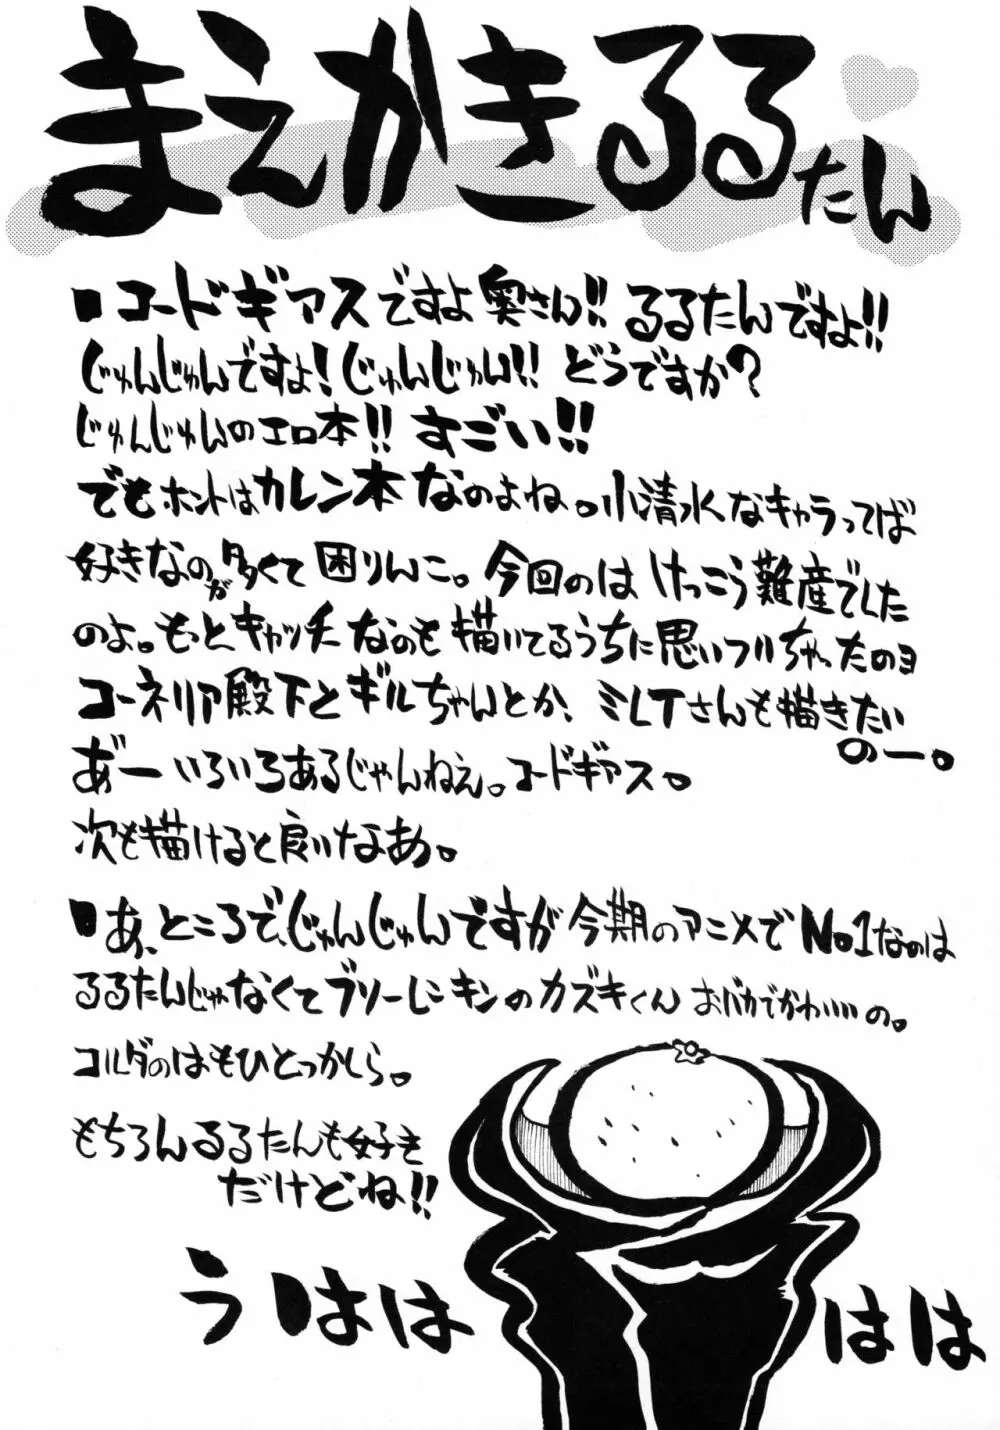 まえがきるるたん
■コードギアスですよ奥さん!! るるたんですよ!!
じゅんじゅんですよ!じゅんじゅん!! どうですか?
じゅんじゅんのエロ本!! すごい!!
でもホントはカレン本なのよね。小清水なキャラってば
好きなのが多くて困りんこ。今回のはけっこう難産でした
のよ。もっとキャッチーなのも描いてるうちに思いついちゃったのヨ
コーネリア殿下とギルちゃんとか、ミレイさんも描きたい
のー。
あ゛ーいろいろあるじゃんねえ。コードギアス。
次も描けると良いなあ。
■あ、ところで、じゅんじゅんですが今期のアニメでNo.1なのは
るるたんじゃなくてブソーレンキンのカズキくん おバカでかわいいの。
コルダのはもひとつかしら。
もちろんるるたんも好き
だけどね!!
うははは
はは